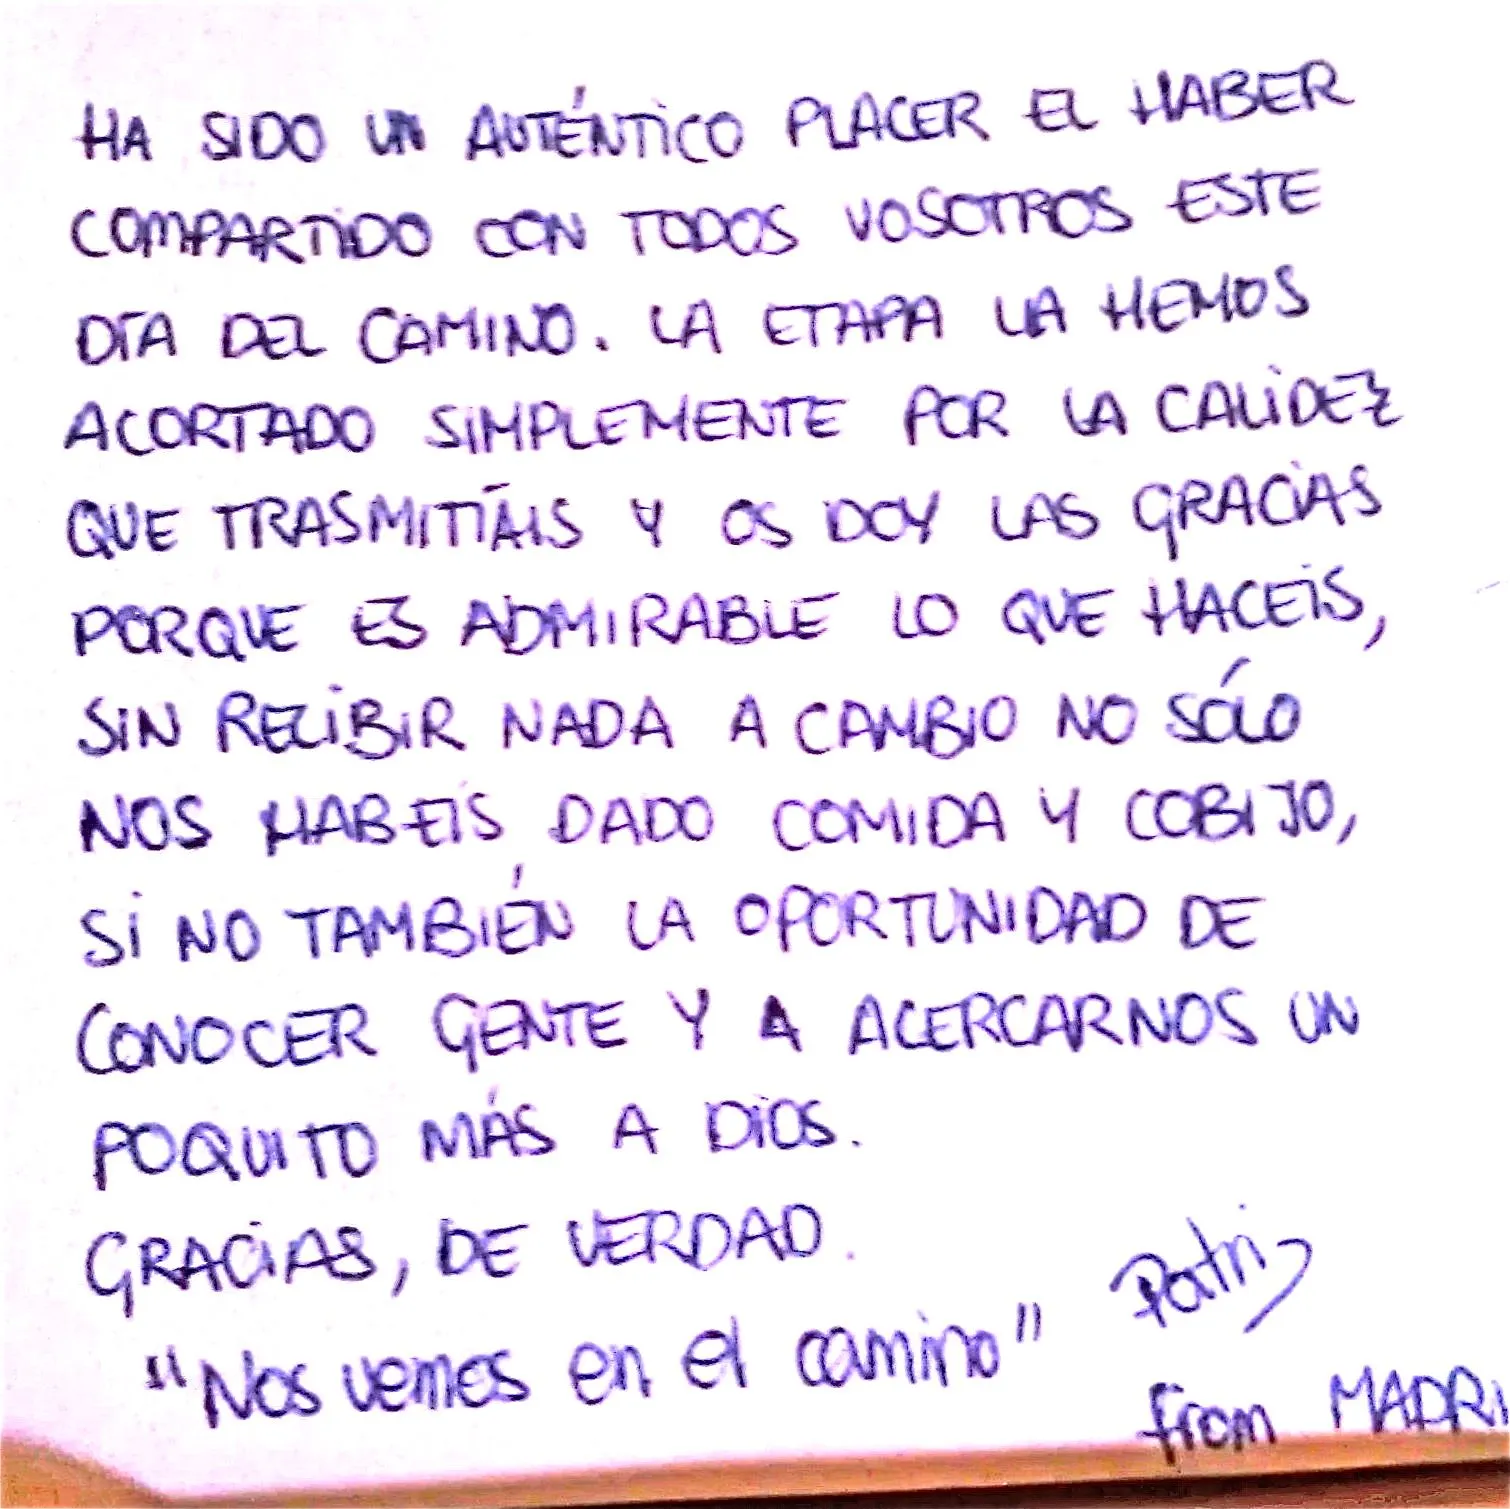 HA SIDO UN AUTÉNTICO PLACER EL HABER
COMPARTIDO CON TODOS VOSOTROS ESTE
DÍA DEL CAMINO. LA ETAPA LA HEMOS
ACORTADO SIMPLEMENTE POR LA CALIDEZ
QUE TRASMITÍAIS Y OS DOY LAS GRACIAS
PORQUE ES ADMIRABLE LO QUE HACEIS,
SIN RECIBIR NADA A CAMBIO NO SÓLO
NOS HABEIS DADO COMIDA Y COBIJO,
SI NO TAMBIÉN LA OPORTUNIDAD DE
CONOCER GENTE Y A ACERCARNOS UN
POQUITO MÁS A DIOS.
GRACIAS, DE VERDAD.
"Nos vemos en el camino"
Patri
from MADRI